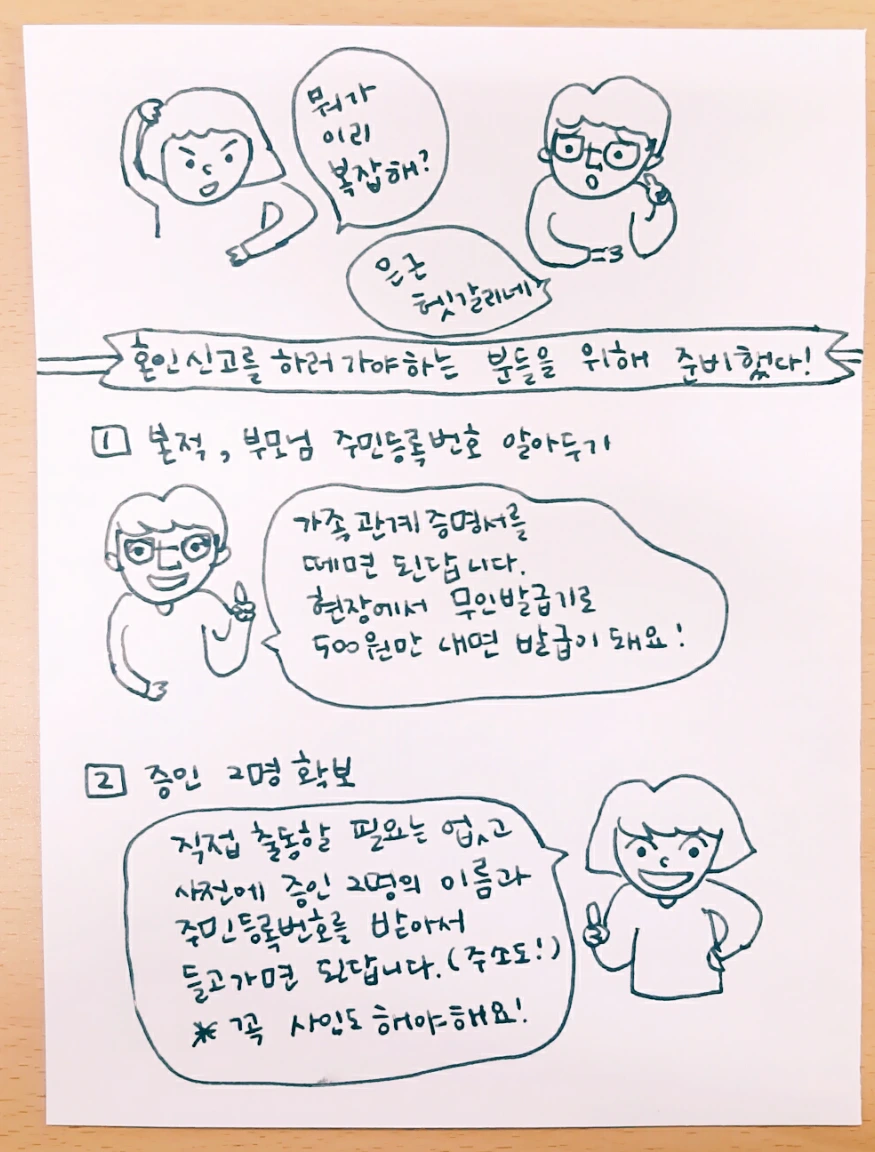 뭐가
이리
복잡해?
은근
헷갈리네
혼인신고를 하러가야하는 분들을 위해 준비했다!
1 본적, 부모님 주민등록번호 알아두기
가족관계증명서를
떼면 된답니다.
현장에서 무인발급기로
500원만 내면 발급이 돼요!
2 증인 2명 확보
직접 출동할 필요는 없고
사전에 증인 2명의 이름과
주민등록번호를 받아서
들고가면 된답니다. (주소도!)
* 꼭 사인도 해야해요!